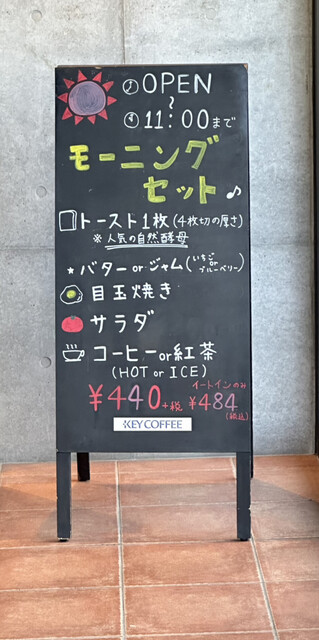 OPEN
~
11:00まで
モーニング
セット♪
トースト1枚(4枚切の厚さ)
※人気の自然酵母
★バターorジャム(いちごorブルーベリー)
目玉焼き
サラダ
コーヒーor紅茶
(HOT or ICE)
イートインのみ
¥440+税 ¥484
(税込)
KEY COFFEE